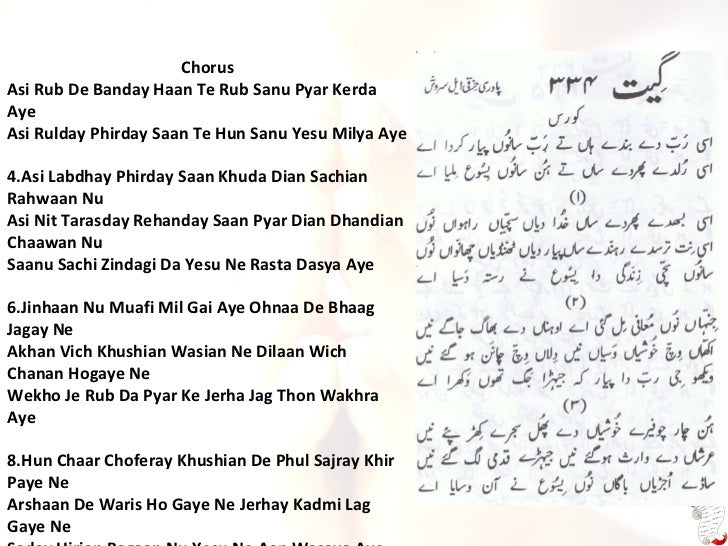 Chorus
Asi Rub De Banday Haan Te Rub Sanu Pyar Kerda
Aye
Asi Rulday Phirday Saan Te Hun Sanu Yesu Milya Aye
4.Asi Labdhay Phirday Saan Khuda Dian Sachian
Rahwaan Nu
Asi Nit Tarasday Rehanday Saan Pyar Dian Dhandian
Chaawan Nu
Saanu Sachi Zindagi Da Yesu Ne Rasta Dasya Aye
6.Jinhaan Nu Muafi Mil Gai Aye Ohnaa De Bhaag
Jagay Ne
Akhan Vich Khushian Wasian Ne Dilaan Wich
Chanan Hogaye Ne
Wekho Je Rub Da Pyar Ke Jerha Jag Thon Wakhra
Aye
8.Hun Chaar Choferay Khushian De Phul Sajray Khir
Paye Ne
Arshaan De Waris Ho Gaye Ne Jerhay Kadmi Lag
Gaye Ne
گیت ۳۳۴
پادری ایل سروش
کورس
اسی رَبّ دے بندے ہاں تے رَبّ سانُوں پیار کردا اے
اسی رُلدے پھردے ساں تے ہُن سانُوں یِسُوع مِلیا اے
(۱)
اسی لبھدے پھردے ساں خُدا دِیاں سچّیاں راہواں نُوں
اسی نِت ترسدے رہندے ساں پیار دیاں ٹھنڈیاں چھانواں نُوں
سانُوں سچّی زِندگی دا یِسُوع نے رستہ دَسیا اے
(۲)
جِنہاں نُوں مُعافی مِل گئی اے اوہناں دے بھاگ جاگے نیں
اکھّاں وِچ خُوشیاں وَسیاں نیں دِلاں وِچ چانن ہو گئے نیں
ویکھو جی ربّ دا پیار کہ جیہڑا جگ تھوں وَکھرا اے
(۳)
ہُن چار چوفیرے خُوشیاں دے پھُل سجرے کھِڑ پئے نیں
عرشاں دے وارث ہو گئے نیں جیہڑے قدمی لگ گئے نیں
ساڈے اُجڑیاں باگاں نُوں یِسُوع نے آن وسایا اے